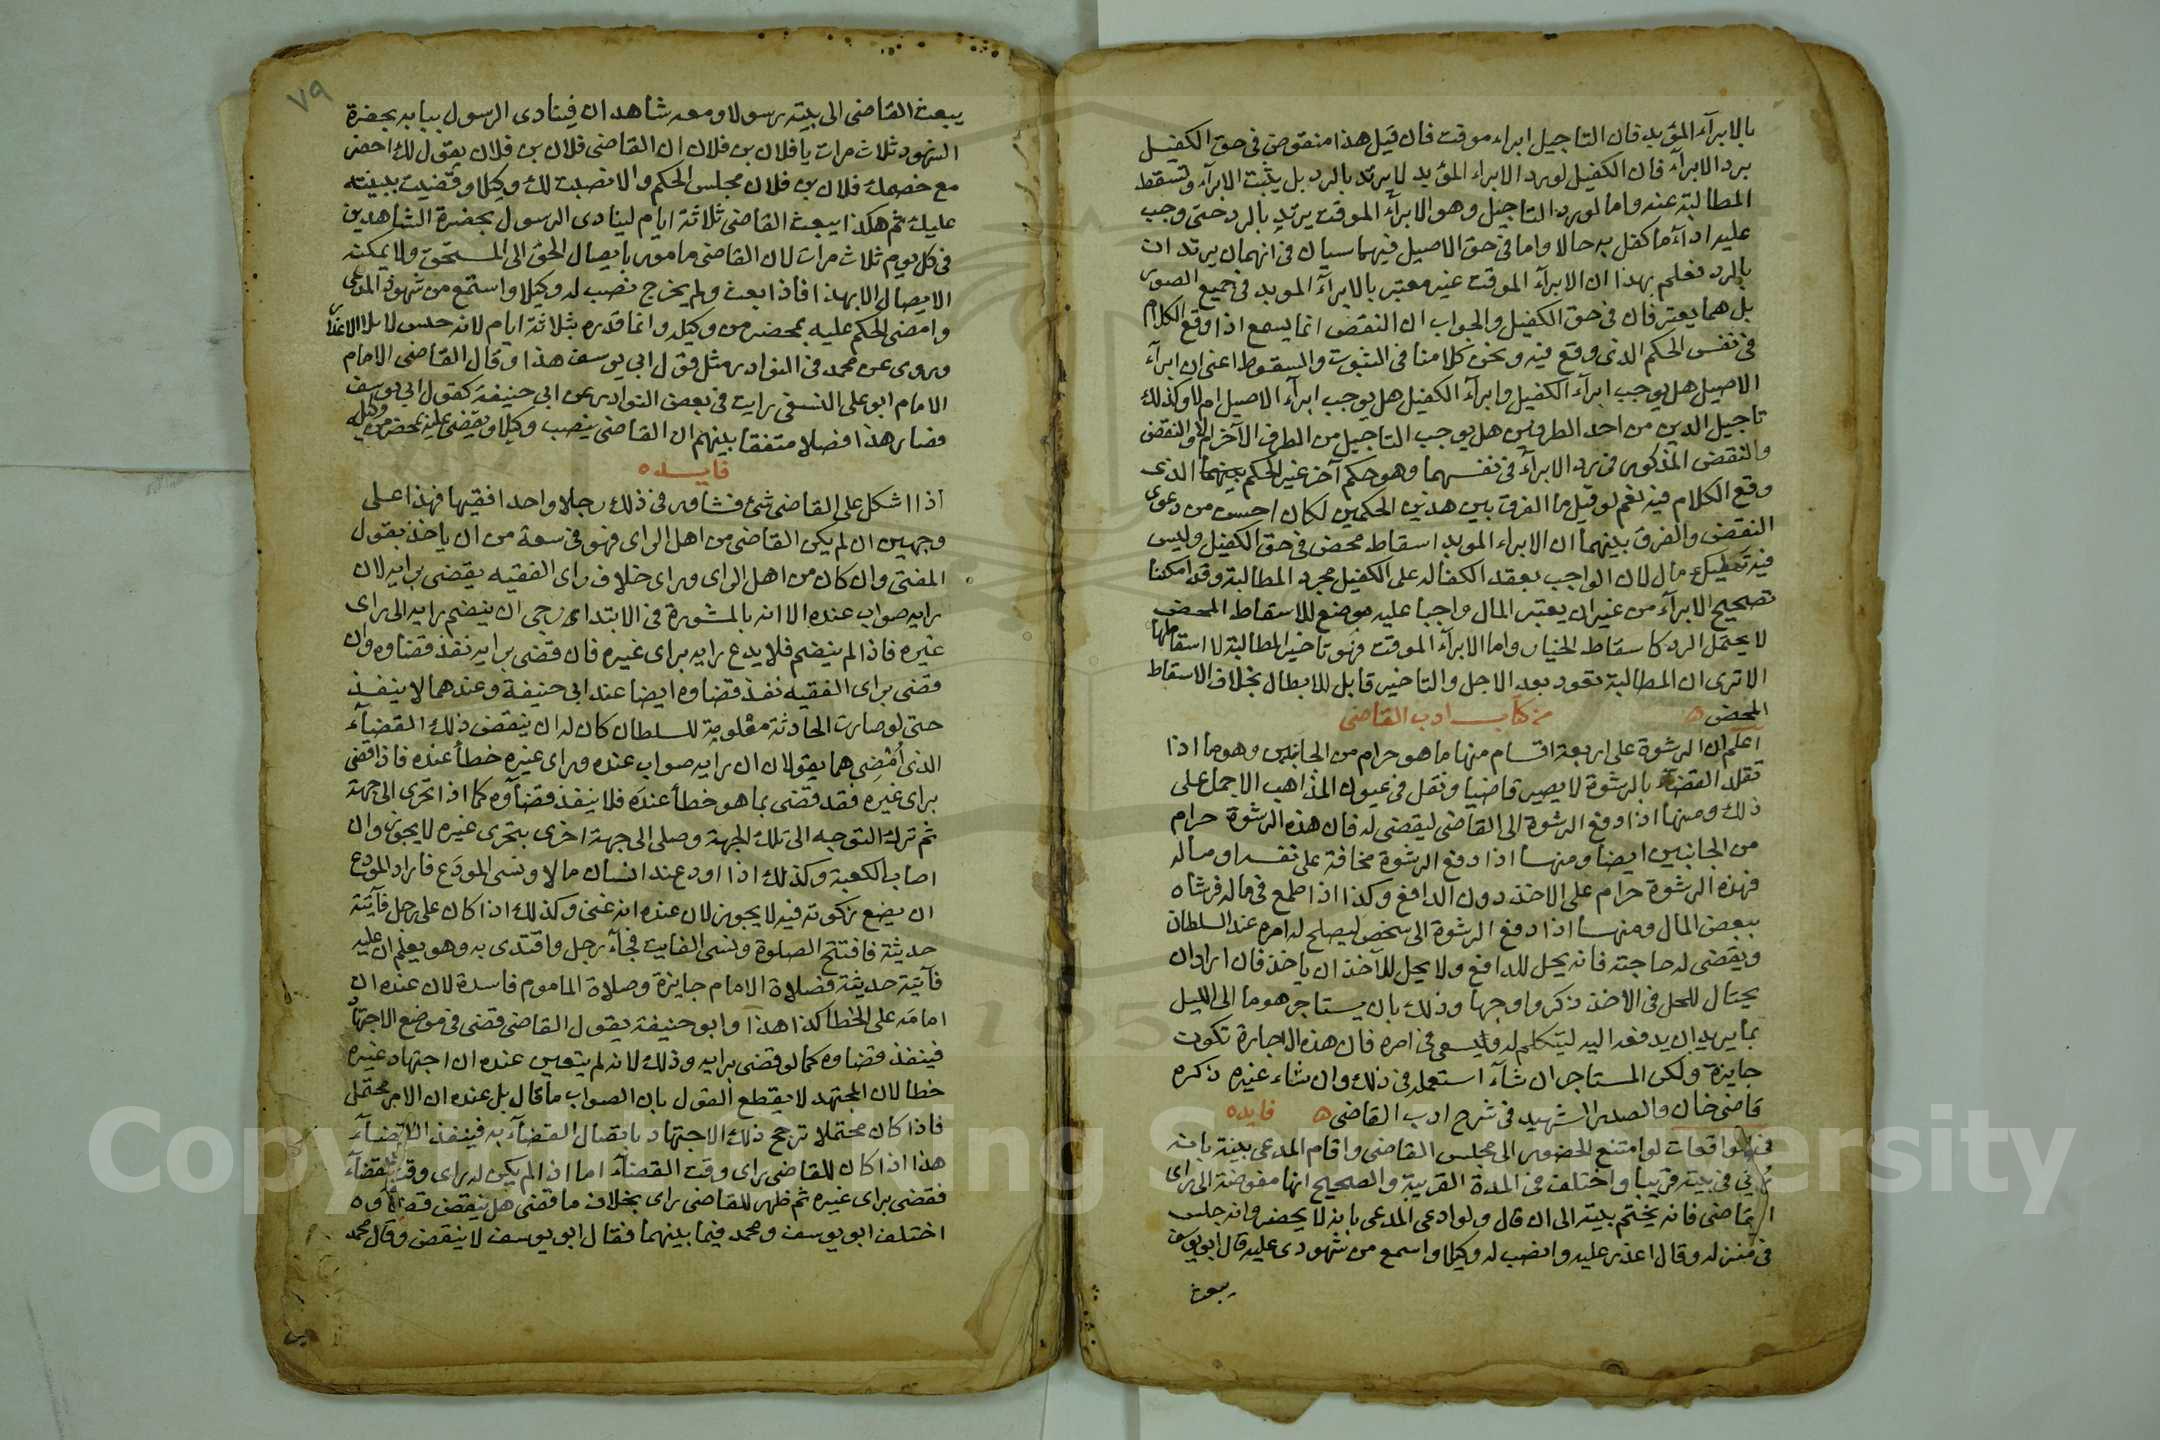 بالابرآء المؤبد فان التاجيل ابراء موقت فان قيل هذا منقوض فى حق الكفيل
برد الابرآء فان الكفيل لورد الابراء المؤبد لا يرتد بالرد بل يثبت الابرآء وتسقط
المطالبة عنه واما لورد التاجيل وهو الابرآء الموقت يرتد بالرد حتى وجب
عليه ادآء ما كفل به حالا واما فى حق الاصيل فيهما سيان فى انهما يرتدان
بالرد فعلم بهذا ان الابرآء الموقت غير معتبر بالابرآء الموبد فى جميع الصور
بل هما يعتبران فى حق الكفيل والجواب ان النقض انما يسمع اذا وقع الكلام
فى نفس الحكم الذى وقع فيه ونحن كلامنا فى الثبوت والسقوط اعنى ان ابرآء
الاصيل هل يوجب ابرآء الكفيل وابرآء الكفيل هل يوجب ابرآء الاصيل ام لا وكذلك
تاجيل الدين من احد الطرفين هل يوجب التاجيل من الطرف الآخر ام لا والنقض
والنقض المذكور فى رد الابرآء فى نفسهما وهو حكم آخر غير الحكم بينهما الذى
وقع الكلام فيه نعم لو قيل ما الفرق بين هذين الحكمين لكان احسن من دعوى
النقض والفرق بينهما ان الابراء الموبد اسقاط محض فى حق الكفيل وليس
فيه تمليك مال لان الواجب بعقد الكفاله على الكفيل مجرد المطالبة وقد امكننا
تصحيح الابرآء من غير ان يعتبر المال واجبا عليه موضع للاسقاط المحض
لا يحتمل الرد كاسقاط الخيار واما الابرآء الموقت فهو تاخير المطالبة لا اسقاطها
الا ترى ان المطالبة تعود بعد الاجل والتاخير قابل للابطال بخلاف الاسقاط
المحض ه من كتاب ادب القاضى
اعلم ان الرشوة على اربعة اقسام منها ما هو حرام من الجانبين وهو ما اذا
تقلد القضآء بالرشوة لا يصير قاضيا ونقل فى عيون المذاهب الاجماع على
ذلك ومنها اذا دفع الرشوة الى القاضى ليقضى له فان هذه الرشوة حرام
من الجانبين ايضا ومنها اذا دفع الرشوة مخافة على نفسه او ماله
فهذه الرشوة حرام على الاخذ دون الدافع وكذا اذا طمع فى ماله فرشاه
ببعض المال ومنها اذا دفع الرشوة الى شخص ليصلح له امره عند السلطان
ويقضى له حاجته فانه يحل للدافع ولا يحل للآخذ ان ياخذ فان اراد ان
يحتال للحل فى الاخذ ذكروا وجها وذلك بان يستاجر هو ما الى الليل
بما يريد ان يدفعه اليه ليتكلم له وليسعى فى امره فان هذه الاجارة تكون
جايزة ولكن المستاجر ان شآء استعمله فى ذلك وان شاء غيره ذكره
قاضى خان والصدر الشهيد فى شرح ادب القاضى ه فايده
فى الواقعات لو امتنع الحضور الى مجلس القاضى واقام المدعى بينة بانه
فى بيته قريبا واختلف فى المدة القريبة والصحيح انها مفوضة الى راى
القاضى فانه يختم بيته الى ان قال ولو ادعى المدعى بانه لا يحضر وانه جلس
فى منزله وقال اعذر عليه وانصب له وكيلا واسمع من شهودى عليه قال ابو يوسف
يبعث
٧٩
يبعث القاضى الى بيته رسولا ومعه شاهدان فينادى الرسول ببابه بحضرة
الشهود ثلاث مرات يا فلان بن فلان ان القاضى فلان بن فلان يقول لك احضر
مع خصمك فلان بن فلان مجلس الحكم والا نصبت لك وكيلا وقضيت ببينته
عليك ثم هكذا يبعث القاضى ثلاثة ايام لينادى الرسول بحضرة الشاهدين
فى كل يوم ثلاث مرات لان القاضى مامور بايصال الحق الى المستحق ولا يمكنه
الايصال الا بهذا فاذا بعث ولم يخرج نصب له وكيلا واستمع من شهود المدعى
وامضى الحكم عليه بمحضر من وكيله وانما قدره بثلاثة ايام لانه حسن لابلاء الاعذار
وروى عن محمد فى النوادر مثل قول ابى يوسف هذا وقال القاضى الامام
الامام ابو على النسفى رايت فى بعض النوادر عن ابى حنيفة كقول ابى يوسف
فصار هذا فصلا متفقا بينهم ان القاضى ينصب وكيلا ويقضى عليه بمحضر من وكيله
فايده ه
اذا اشكل على القاضى شئ فشاور فى ذلك رجلا واحدا فقيها فهذا على
وجهين ان لم يكن القاضى من اهل الراى فهو فى سعة من ان ياخذ بقول
المفتى وان كان من اهل الراى وراى خلاف راى الفقيه يقضى برايه لان
رايه صواب عنده الا انه بالمشورة فى الابتداء رجى ان ينضم رايه الى راى
غيره فاذا لم ينضم فلا يدع رايه براى غيره فان قضى برايه نفذ قضاوه وان
قضى براى الفقيه نفذ قضاوه ايضا عند ابى حنيفة وعندهما لا ينفذ
حتى لو صارت الحادثة معلومة للسلطان كان له ان ينقض ذلك القضآء
الذى أمضى هما يقولان ان رايه صواب عنده وراى غيره خطأ عنده فاذا قضى
براى غيره فقد قضى بما هو خطأ عنده فلا ينفذ قضآوه كما اذا تحرى الى جهة
ثم ترك التوجه الى تلك الجهة وصلى الى جهة اخرى بتحرى غيره لا يجوز وان
اصاب الكعبة وكذلك اذا اودع عند انسان مالا ونسى المودَع فاراد المودع
ان يضع زكوته فيه لا يجوز لان عنده انه غنى وكذلك اذا كان على رجل فآئتة
حديثة فافتتح الصلوة ونسى الفايت فجآء رجل واقتدى به وهو يعلم ان عليه
فآئتة حديثة فصلاة الامام جايزة وصلاة الماموم فاسدة لان عنده ان
امامه على الخطا كذا هذا وابو حنيفة يقول القاضى قضى فى موضع الاجتهاد
فينفذ قضاوه كما لو قضى برايه وذلك لانه لم يتعين عنده ان اجتهاد غيره
خطا لان المجتهد لا يقطع القول بان الصواب ما قال بل عنده ان الامر محتمل
فاذا كان محتملا ترجح ذلك الاجتهاد باتصال القضآء به فينفذ القضآء
هذا اذا كان للقاضى راى وقت القضآء اما اذا لم يكن له راى وقت القضآء
فقضى براى غيره ثم ظهر للقاضى راى بخلاف ما قضى هل ينقض قضاوه
اختلف ابو يوسف ومحمد فيما بينهما فقال ابو يوسف لا ينقض وقال محمد